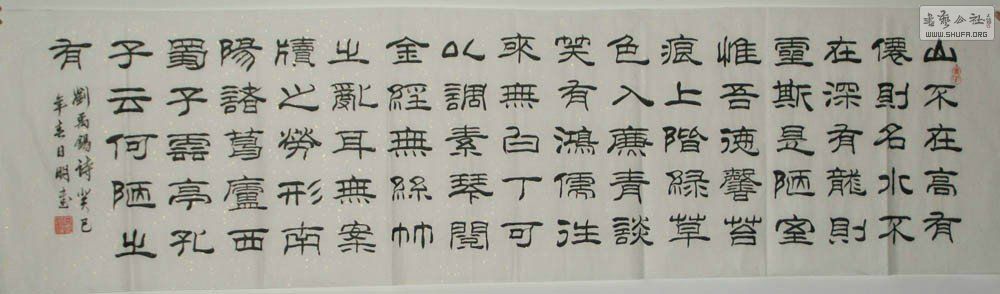 山不在高有
僊則名水不
在深有龍則
靈斯是陋室
惟吾德馨苔
痕上階綠草
色入廉青談
笑有鴻儒往
來無白丁可
以調素琴閱
金經無絲竹
之亂耳無案
牘之勞形南
陽諸葛廬西
蜀子雲亭孔
子云何陋之
有
劉禹錫詩癸巳
年春日明
书艺公社
WWW.SHUFA.ORG